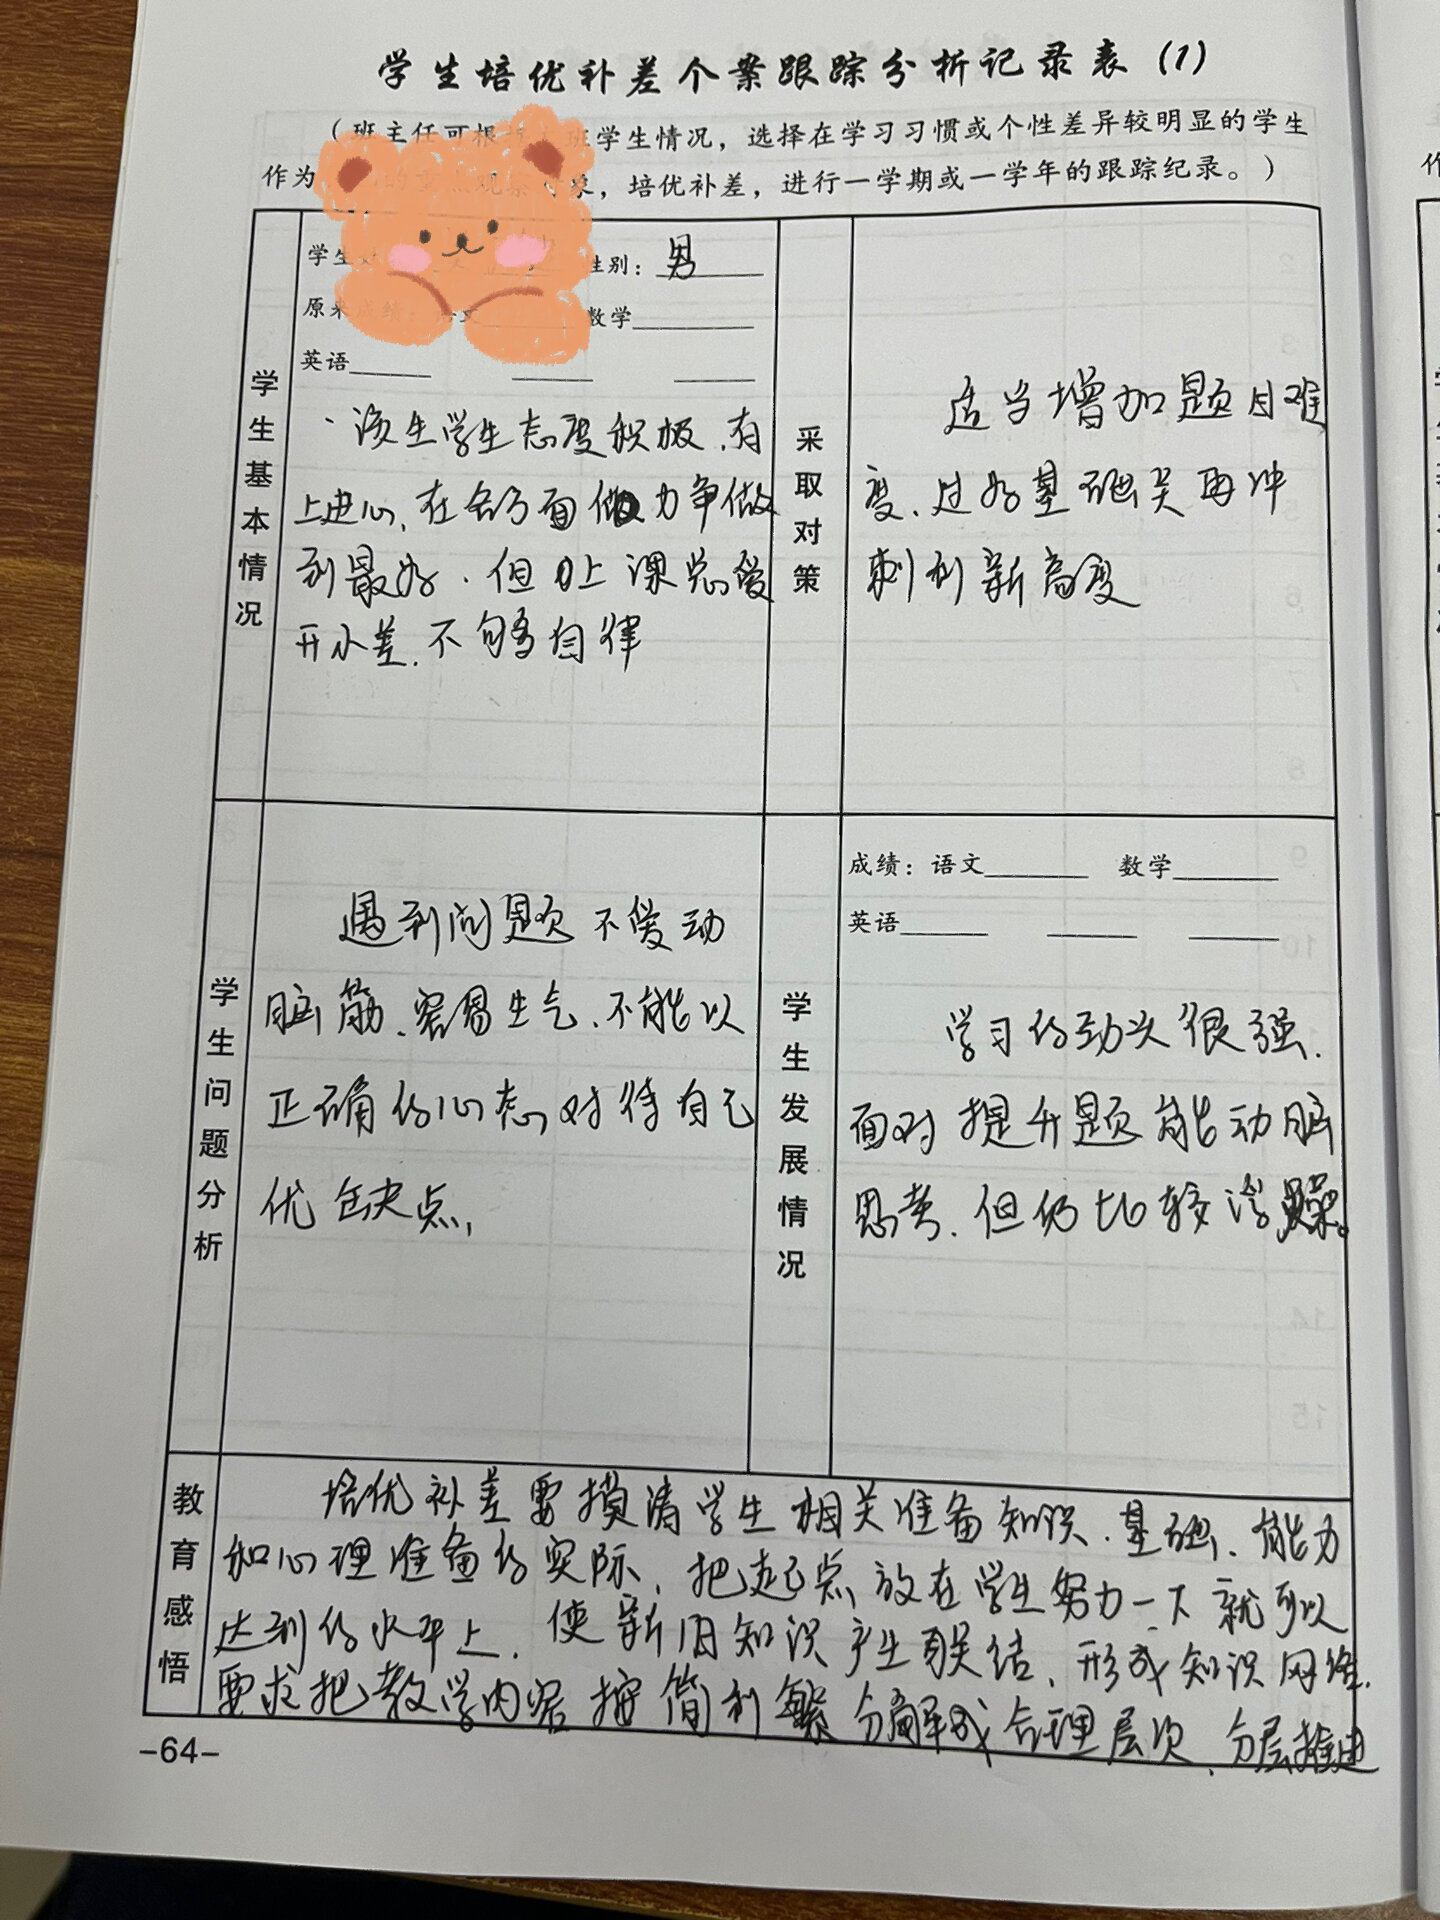 学生培优补差个案跟踪分析记录表（1）
（班主任可根 班学生情况，选择在学习习惯或个性差异较明显的学生
作为 的重点观察对象，培优补差，进行一学期或一学年的跟踪纪录。）
学生基本情况
学生 性别：男
原来成绩：语文 数学
英语
该生学生态度积极、有
上进心、在各方面做力争做
到最好、但上课总爱
开小差、不够自律
采取对策
适当增加题目难
度、过好基础关再冲
刺到新高度
学生问题分析
遇到问题不爱动
脑筋、容易生气、不能以
正确的心态对待自己
优缺点、
学生发展情况
成绩：语文 数学
英语
学习的劲头很强、
面对提升题能动脑
思考、但仍比较浮躁。
教育感悟
培优补差要摸清学生相关准备知识、基础、能力
和心理准备的实际、把起点放在学生努力一下就可以
达到的水平上、使新旧知识产生联结、形成知识网络、
要求把教学内容按简到繁分解成合理层次、分层推进
-64-